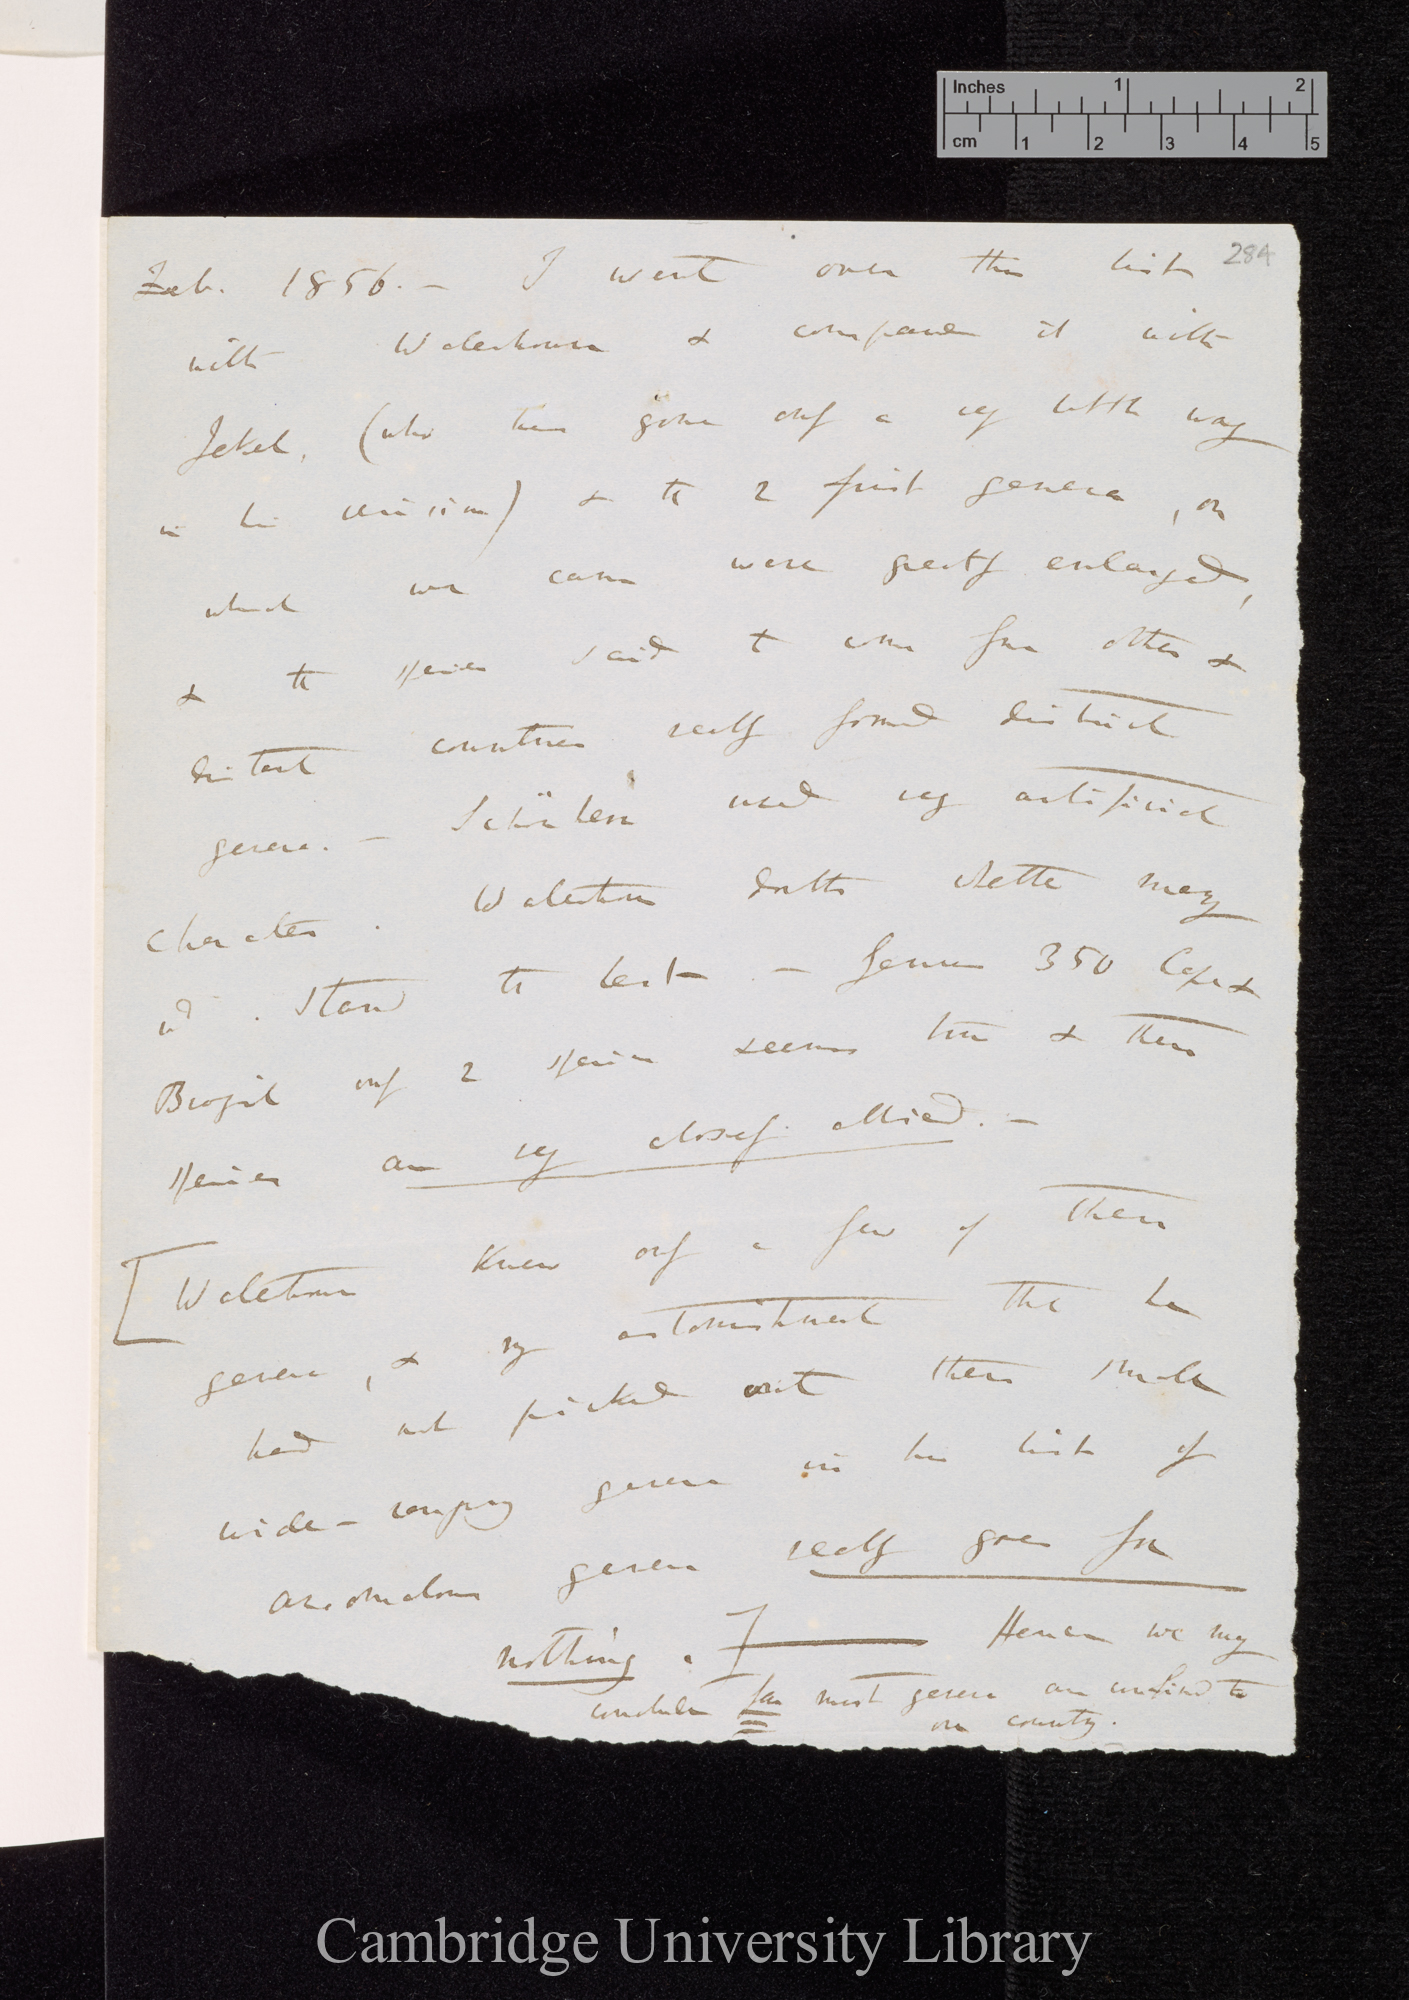 284
Feb. 1856. — I went over this list
with Waterhouse & compared it with
Jekel, (who has gone only a very little way
in his revision) & the 2 first genera, on
which we came were greatly enlarged,
& the species said to come from other &
distant countries really formed distinct
genera. — Schönherr used very artificial
characters. Waterhouse doubts whether many
wd. stand the test — Genus 350 Cape &
Brazil only 2 species seems true & these
species are very closely allied. —
[Waterhouse knew only a few of these
genera, & my astonishment that he
had not picked out these small
wide-ranging genera in his list of
anomalous genera really goes for
nothing.] — Hence we may
conclude far most genera are confined to
one country.
Inches 1 2
cm 1 2 3 4 5
Cambridge University Library